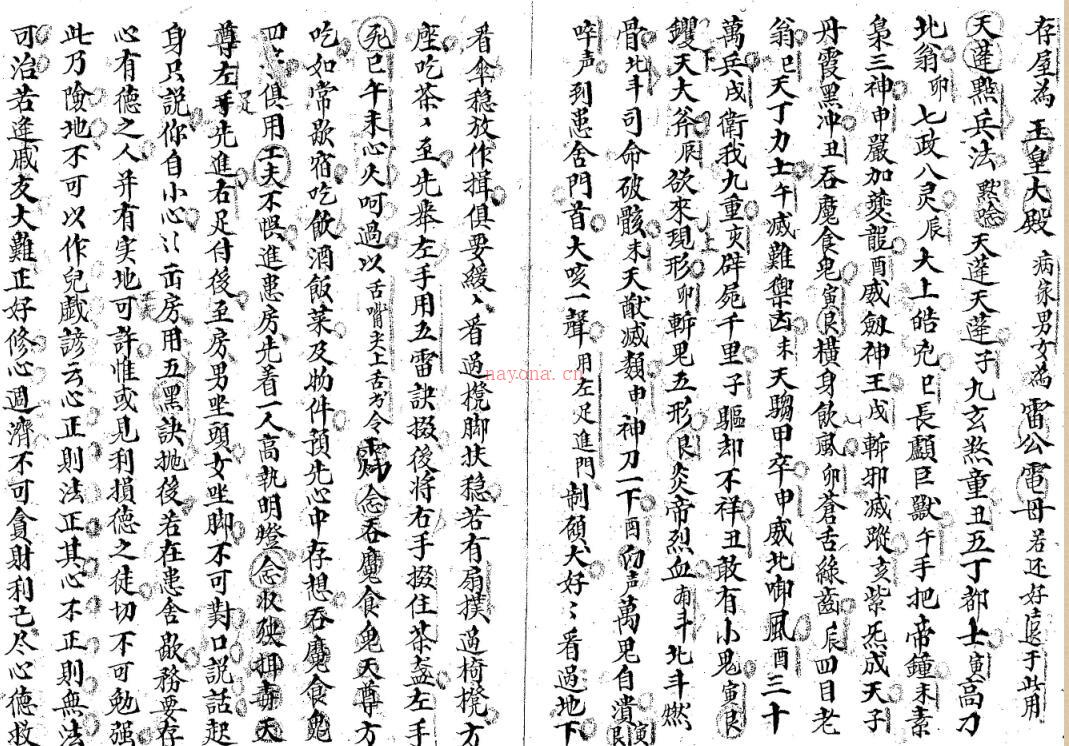 存屋為 玉皇大殿 病家男女為 雷公電母 若还好遠于此用
天蓬㸃兵法 㸃唸 天蓬天蓬子九玄煞童丑五丁都士寅高刀
北翁卯七政八灵辰大上皓兇巳長顱巨獸午手把帝鐘未素
梟三神申嚴加夔龍酉威劍神王戌斬邪滅蹤亥紫炁成天子
丹霞黑冲丑吞魔食鬼寅艮橫身飲風卯蒼舌綠齒辰四目老
翁巳天丁力士午滅難禦凶未天騶甲卒申威北啣風酉三十
萬兵戌衛我九重亥辟屍千里子驅却不祥丑敢有小鬼寅艮
下上
钁天大斧辰欲來現形卯斬鬼五形艮炎帝烈血南斗北斗燃
骨北斗司命破骸未天猷滅類申神刀一下酉 声萬鬼自潰寅艮
啐声到患舍門首大咳一聲用左足進門 制碩大好〻看過地下
看傘稳放作揖俱要緩〻看過櫈脚扶稳若有扇撲過椅櫈方
座吃茶〻至先舉左手用五雷訣掇後將右手掇住茶盏左手
死巳午未心火呵過以舌嘴尖上舌为令 念吞魔食鬼天尊方
吃如常歇宿吃飲酒飯菜及物件預先心中存想吞魔食鬼
四 俱用工夫不惧進患房先着一人高執明燈念收 天
尊左手先進右足付後至房男坐頭女坐脚不可對口説話起
足
身只説你自小心〻出房用五黑訣拋後若在患舍歇務要存
心有德之人并有实地可許惟或見利損德之徒切不可勉强
此乃險地不可以作兒戲諺云心正則法正其心不正則無法
可治若逢戚友大難正好修心週濟不可貪財利己尽心德救
nayona.cn